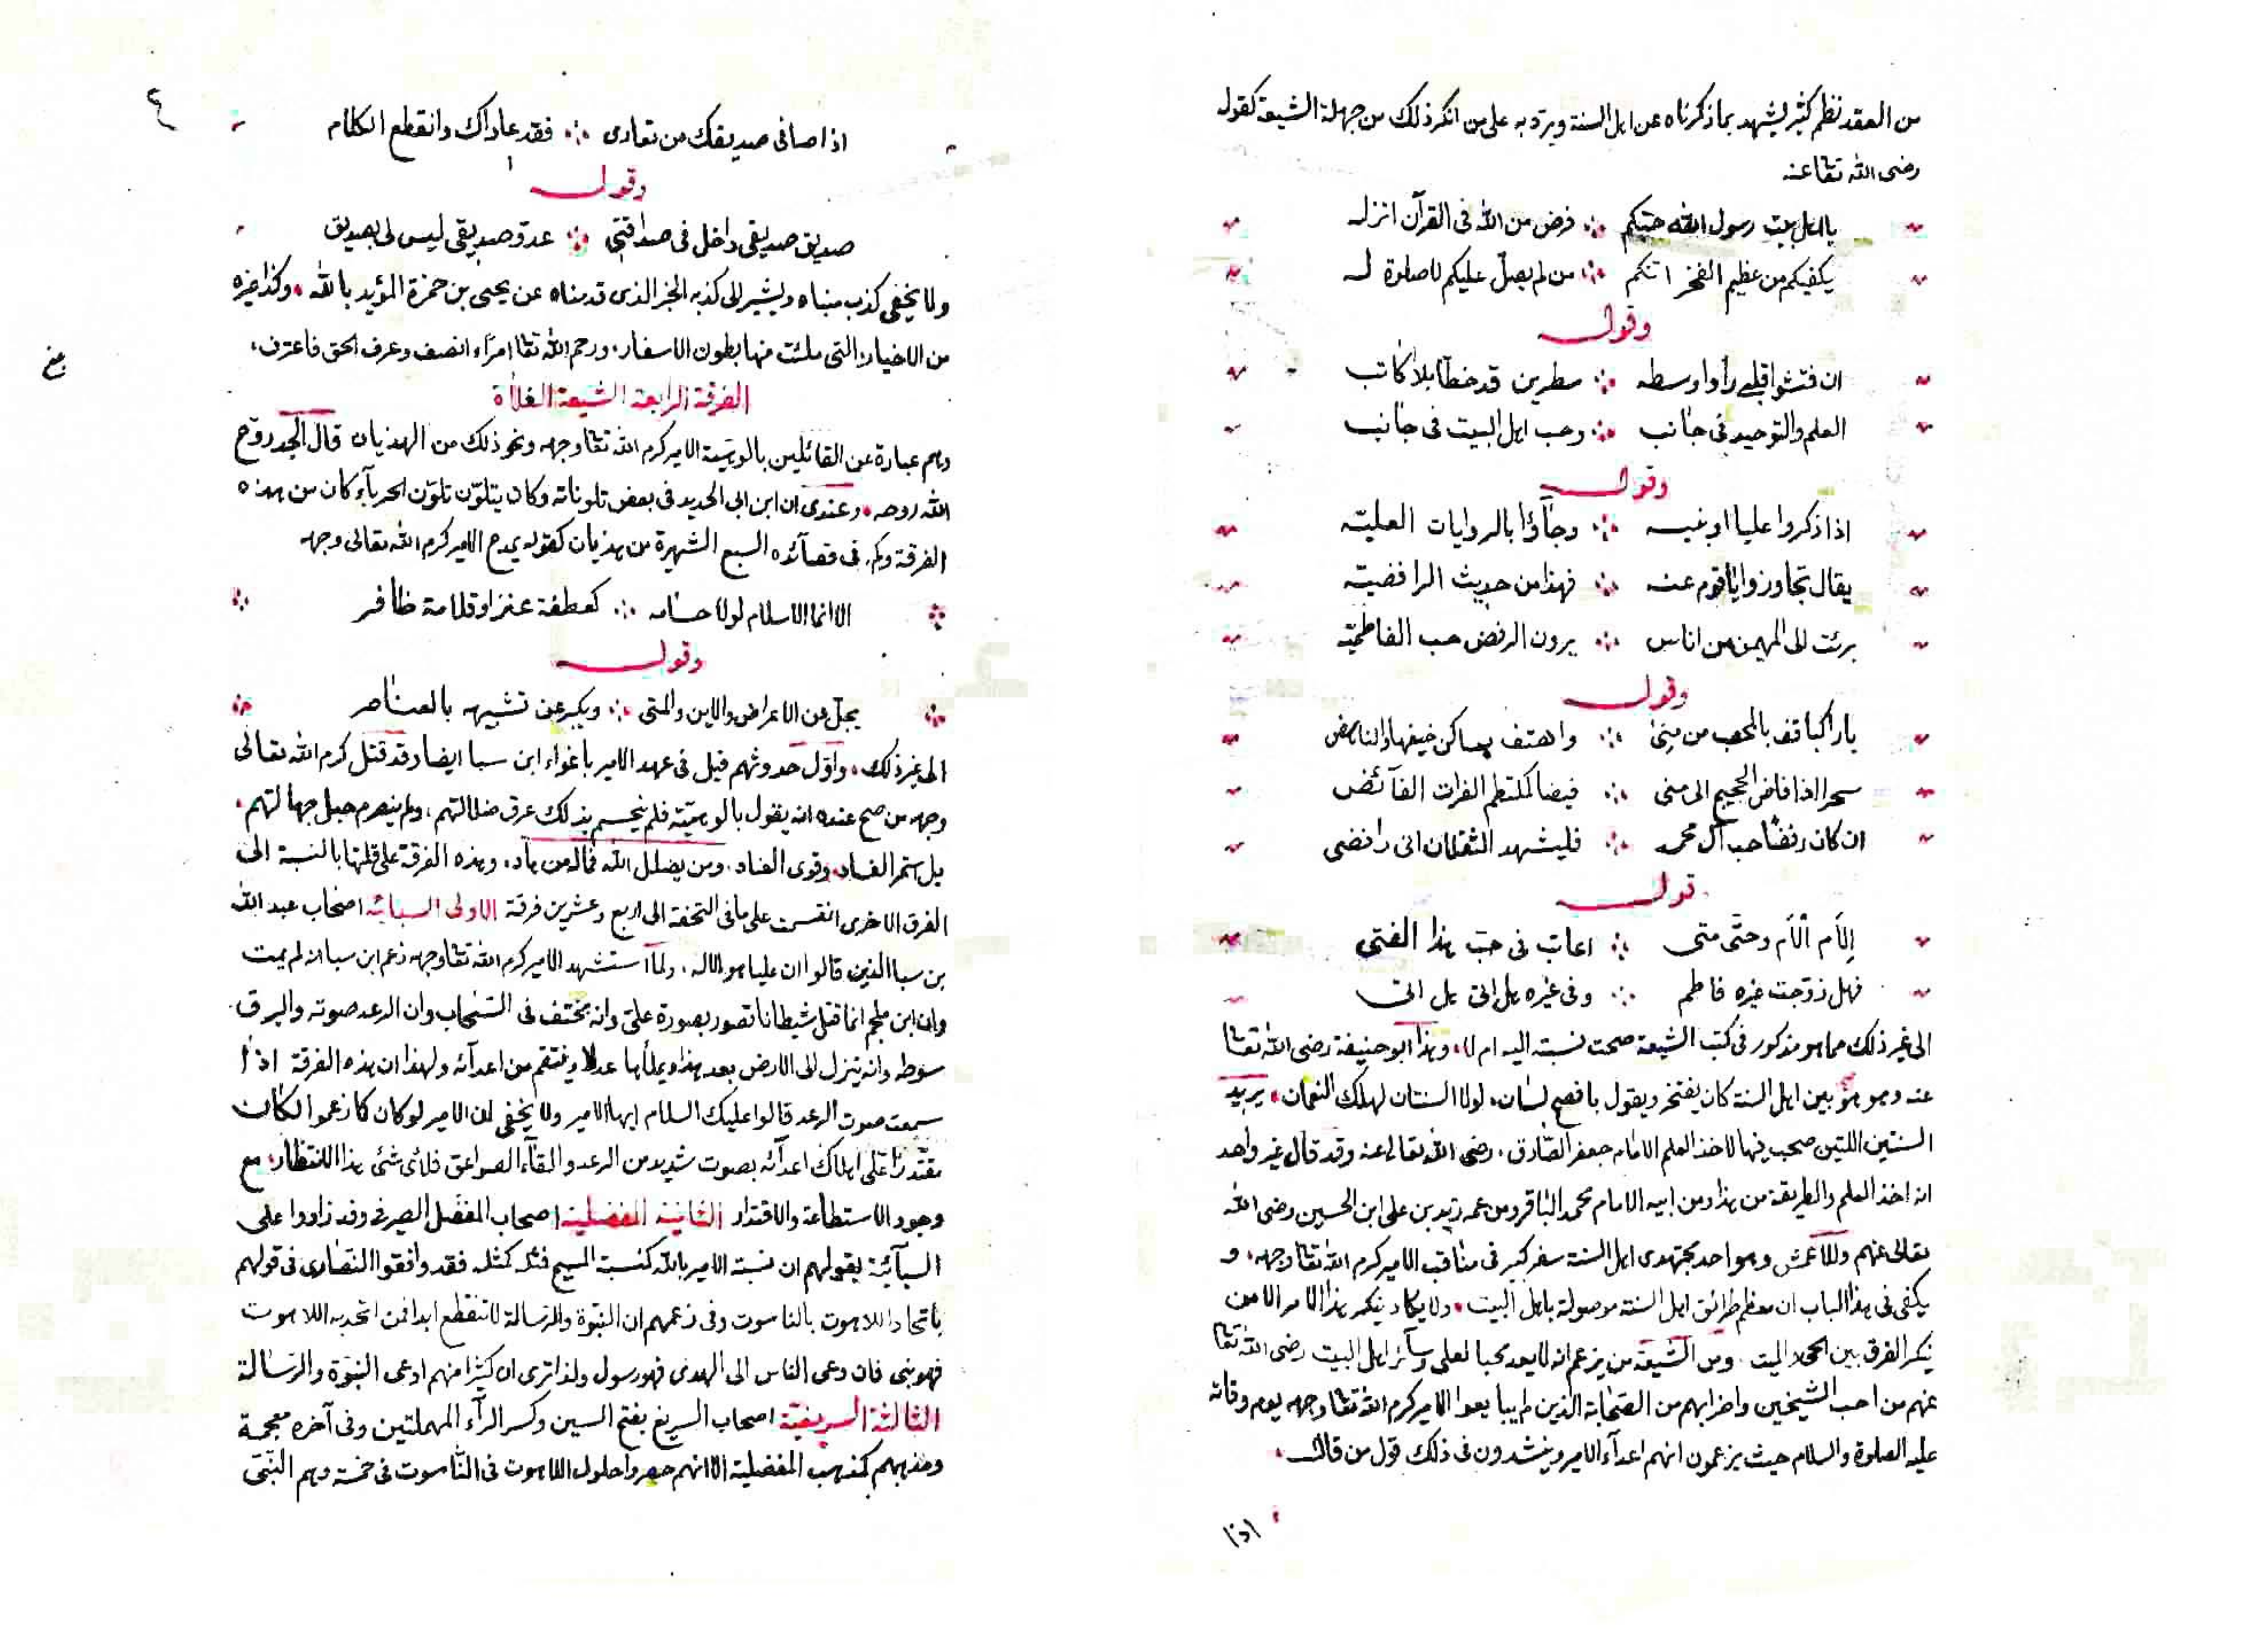 من العقد نظم كثير يشهد بما ذكرناه عن اهل السنة ويرد به على من انكر ذلك من جهلة الشيعة كقول
رضى الله تقا عنه
يا اهل بيت رسول الله حبكم ∴ فرض من الله فى القرآن انزله
يكفيكم من عظيم الفخر انكم ∴ من لم يصل عليكم لا صلوة له
وقوله
ان فتشوا قلبى رأوا وسطه ∴ سطرين قد خطا بلا كاتب
العلم والتوحيد فى جانب ∴ وحب اهل البيت فى جانب
وقوله
اذا ذكروا عليا او بنيه ∴ وجاؤا بالروايات العليه
يقال تجاوزوا يا قوم عنه ∴ فهذا من حديث الرافضيه
برئت الى المهيمن من اناس ∴ يرون الرفض حب الفاطميه
وقوله
يا راكبا قف بالمحصب من منى ∴ واهتف بساكن خيفها والناهض
سحرا اذا فاض الحجيج الى منى ∴ فيضا كملتطم الفرات الفائض
ان كان رفضا حب آل محمد ∴ فليشهد الثقلان انى رافضى
قوله
إلام ألام وحتى متى ∴ اعاتب فى حب هذا الفتى
فهل زوجت غيره فاطم ∴ وفى غيره هل اتى هل اتى
الى غير ذلك مما هو مذكور فى كتب الشيعة صحت نسبته اليه ام لا، وهذا ابو حنيفة رضى الله تقا
عنه وهو هو بين اهل السنة كان يفتخر ويقول بافصح لسان، لولا السنتان لهلك النعمان، يريد
السنتين اللتين صحب فيها لاخذ العلم الامام جعفر الصادق، رضى الله تعالى عنه وقد قال غير واحد
انه اخذ العلم والطريقة من هذا ومن ابيه الامام محمد الباقر ومن عمه زيد بن على ابن الحسين رضى الله
تعالى عنهم وللاعمش وهو احد مجتهدى اهل السنة سفر كبير فى مناقب الامير كرم الله تقا وجهه، و
يكفى فى هذا الباب ان معظم طرائق اهل السنة موصولة باهل البيت، ولا يكاد ينكر هذا الامر الا من
ينكر الفرق بين الحى والميت، ومن الشيعة من يزعم انه لا يعد محبا لعلى وسائر اهل البيت رضى الله تقا
عنهم من احب الشيخين واضرابهم من الصحابة الذين لم يبايعوا الامير كرم الله تقا وجهه يوم وفاته
عليه الصلوة والسلام حيث يزعمون انهم اعداء الامير وينشدون فى ذلك قول من قال،
اذا
٤
اذا صافى صديقك من تعادى ∴ فقد عاداك وانقطع الكلام
وقوله
صديق صديقى داخل فى صداقتى ∴ عدو صديقى ليس لى بصديق
ولا يخفى كذب مبناه ويشير الى كذبه الخبر الذى قدمناه عن يحيى بن حمزة المؤيد بالله، وكذا غيره
من الاخبار التى ملئت منها بطون الاسفار، ورحم الله تقا امرأ انصف وعرف الحق فاعترف،
الفرقة الرابعة الشيعة الغلاة
وهم عبارة عن القائلين بالوهية الامير كرم الله تقا وجهه ونحو ذلك من الهذيان قال الجد روح
الله روحه، وعندى ان ابن ابى الحديد فى بعض تلوناته وكان يتلون تلون الحرباء كان من هذه
الفرقة وكم فى قصائده السبع الشهيرة من هذيان كقوله يمدح الامير كرم الله تعالى وجهه
الا انما الاسلام لولا حسامه ∴ كعطفة عنز او قلامة ظافر
وقوله
يجل عن الاعراض والاين والمتى ∴ ويكبر عن تشبيه بالعناصر
الى غير ذلك، واول حدوثهم قيل فى عهد الامير باغواء ابن سبا ايضا وقد قتل كرم الله تعالى
وجهه من صح عنده انه يقول بالوهيته فلم ينحسم بذلك عرق ضلالتهم، ولم ينصرم حبل جهالتهم،
بل استمر الفساد، وقوى العناد، ومن يضلل الله فما له من هاد، وهذه الفرقة على قلتها بالنسبة الى
الفرق الاخرى انقسمت على ما فى التحفة الى اربع وعشرين فرقة الاولى السبائية اصحاب عبد الله
بن سبا الذين قالوا ان عليا هو الاله، ولما استشهد الامير كرم الله تقا وجهه زعم ابن سبا انه لم يمت
وان ابن ملجم انما قتل شيطانا تصور بصورة على وانه مختف فى السحاب وان الرعد صوته والبرق
سوطه وانه ينزل الى الارض بعد هذا ويملأها عدلا وينتقم من اعدائه ولهذا ان هذه الفرقة اذا
سمعت صوت الرعد قالوا عليك السلام ايها الامير ولا يخفى ان الامير لو كان كما زعموا لكان
مقتدرا على اهلاك اعدائه بصوت شديد من الرعد والقاء الصواعق فلاى شئ هذا الانتظار، مع
وجود الاستطاعة والاقتدار الثانية المفضلية اصحاب المفضل الصيرفى وقد زادوا على
السبائية بقولهم ان نسبة الامير بالله كنسبة المسيح فمثله كمثله فقد وافقوا النصارى فى قولهم
باتحاد اللاهوت بالناسوت وفى زعمهم ان النبوة والرسالة لا تنقطع ابدا فمن اتحد به اللاهوت
فهو نبى فان دعى الناس الى الهدى فهو رسول ولذا ترى ان كثيرا منهم ادعى النبوة والرسالة
الثالثة السريغية اصحاب السريغ بفتح السين وكسر الراء المهملتين وفى آخره معجمة
ومذهبهم كمذهب المفضلية الا انهم حصروا حلول اللاهوت فى الناسوت فى خمسة وهم النبى